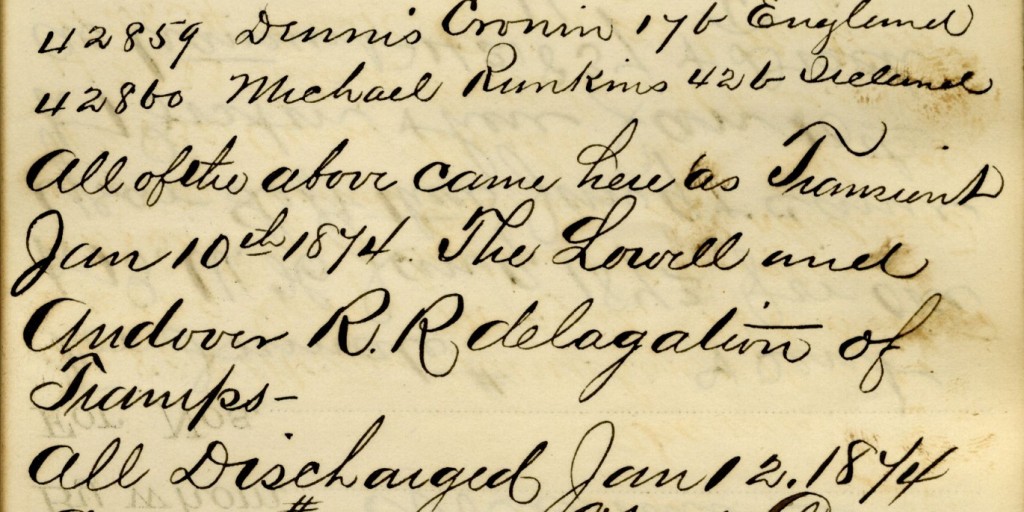 42859 Dennis Cronin 17 b England
42860 Michael Runkins 42 b Ireland
All of the above came here as Transient
Jan 10th 1874. The Lowell and
Andover R. R delagation of
Tramps-
All Discharged Jan 12. 1874